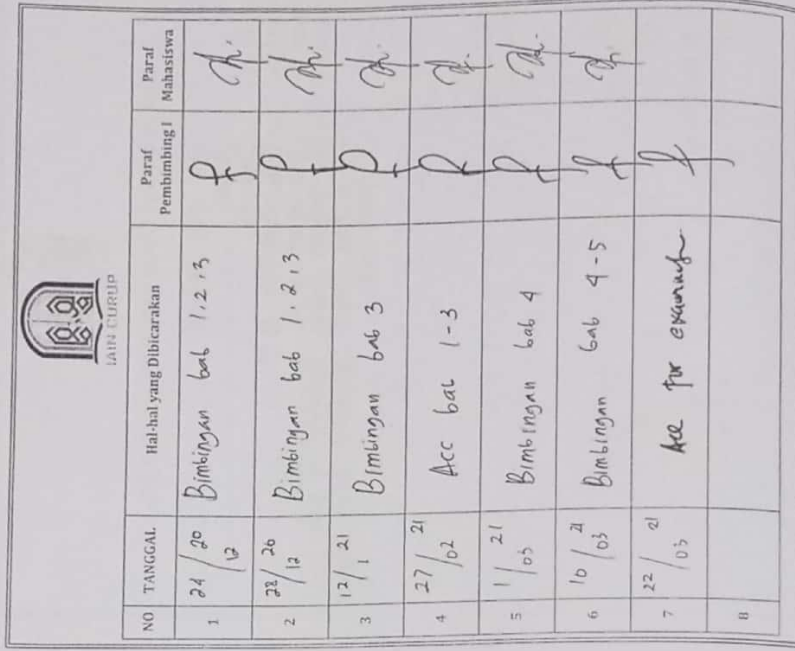 IAIN CURUP
NO TANGGAL Hal-hal yang Dibicarakan Paraf Pembimbing I Paraf Mahasiswa
1 24/12 20 Bimbingan bab 1,2,3
2 28/12 20 Bimbingan bab 1,2,3
3 12/1 21 Bimbingan bab 3
4 27/02 21 Acc bab 1-3
5 1/03 21 Bimbingan bab 4
6 10/03 21 Bimbingan bab 4-5
7 22/03 21 Acc for
8